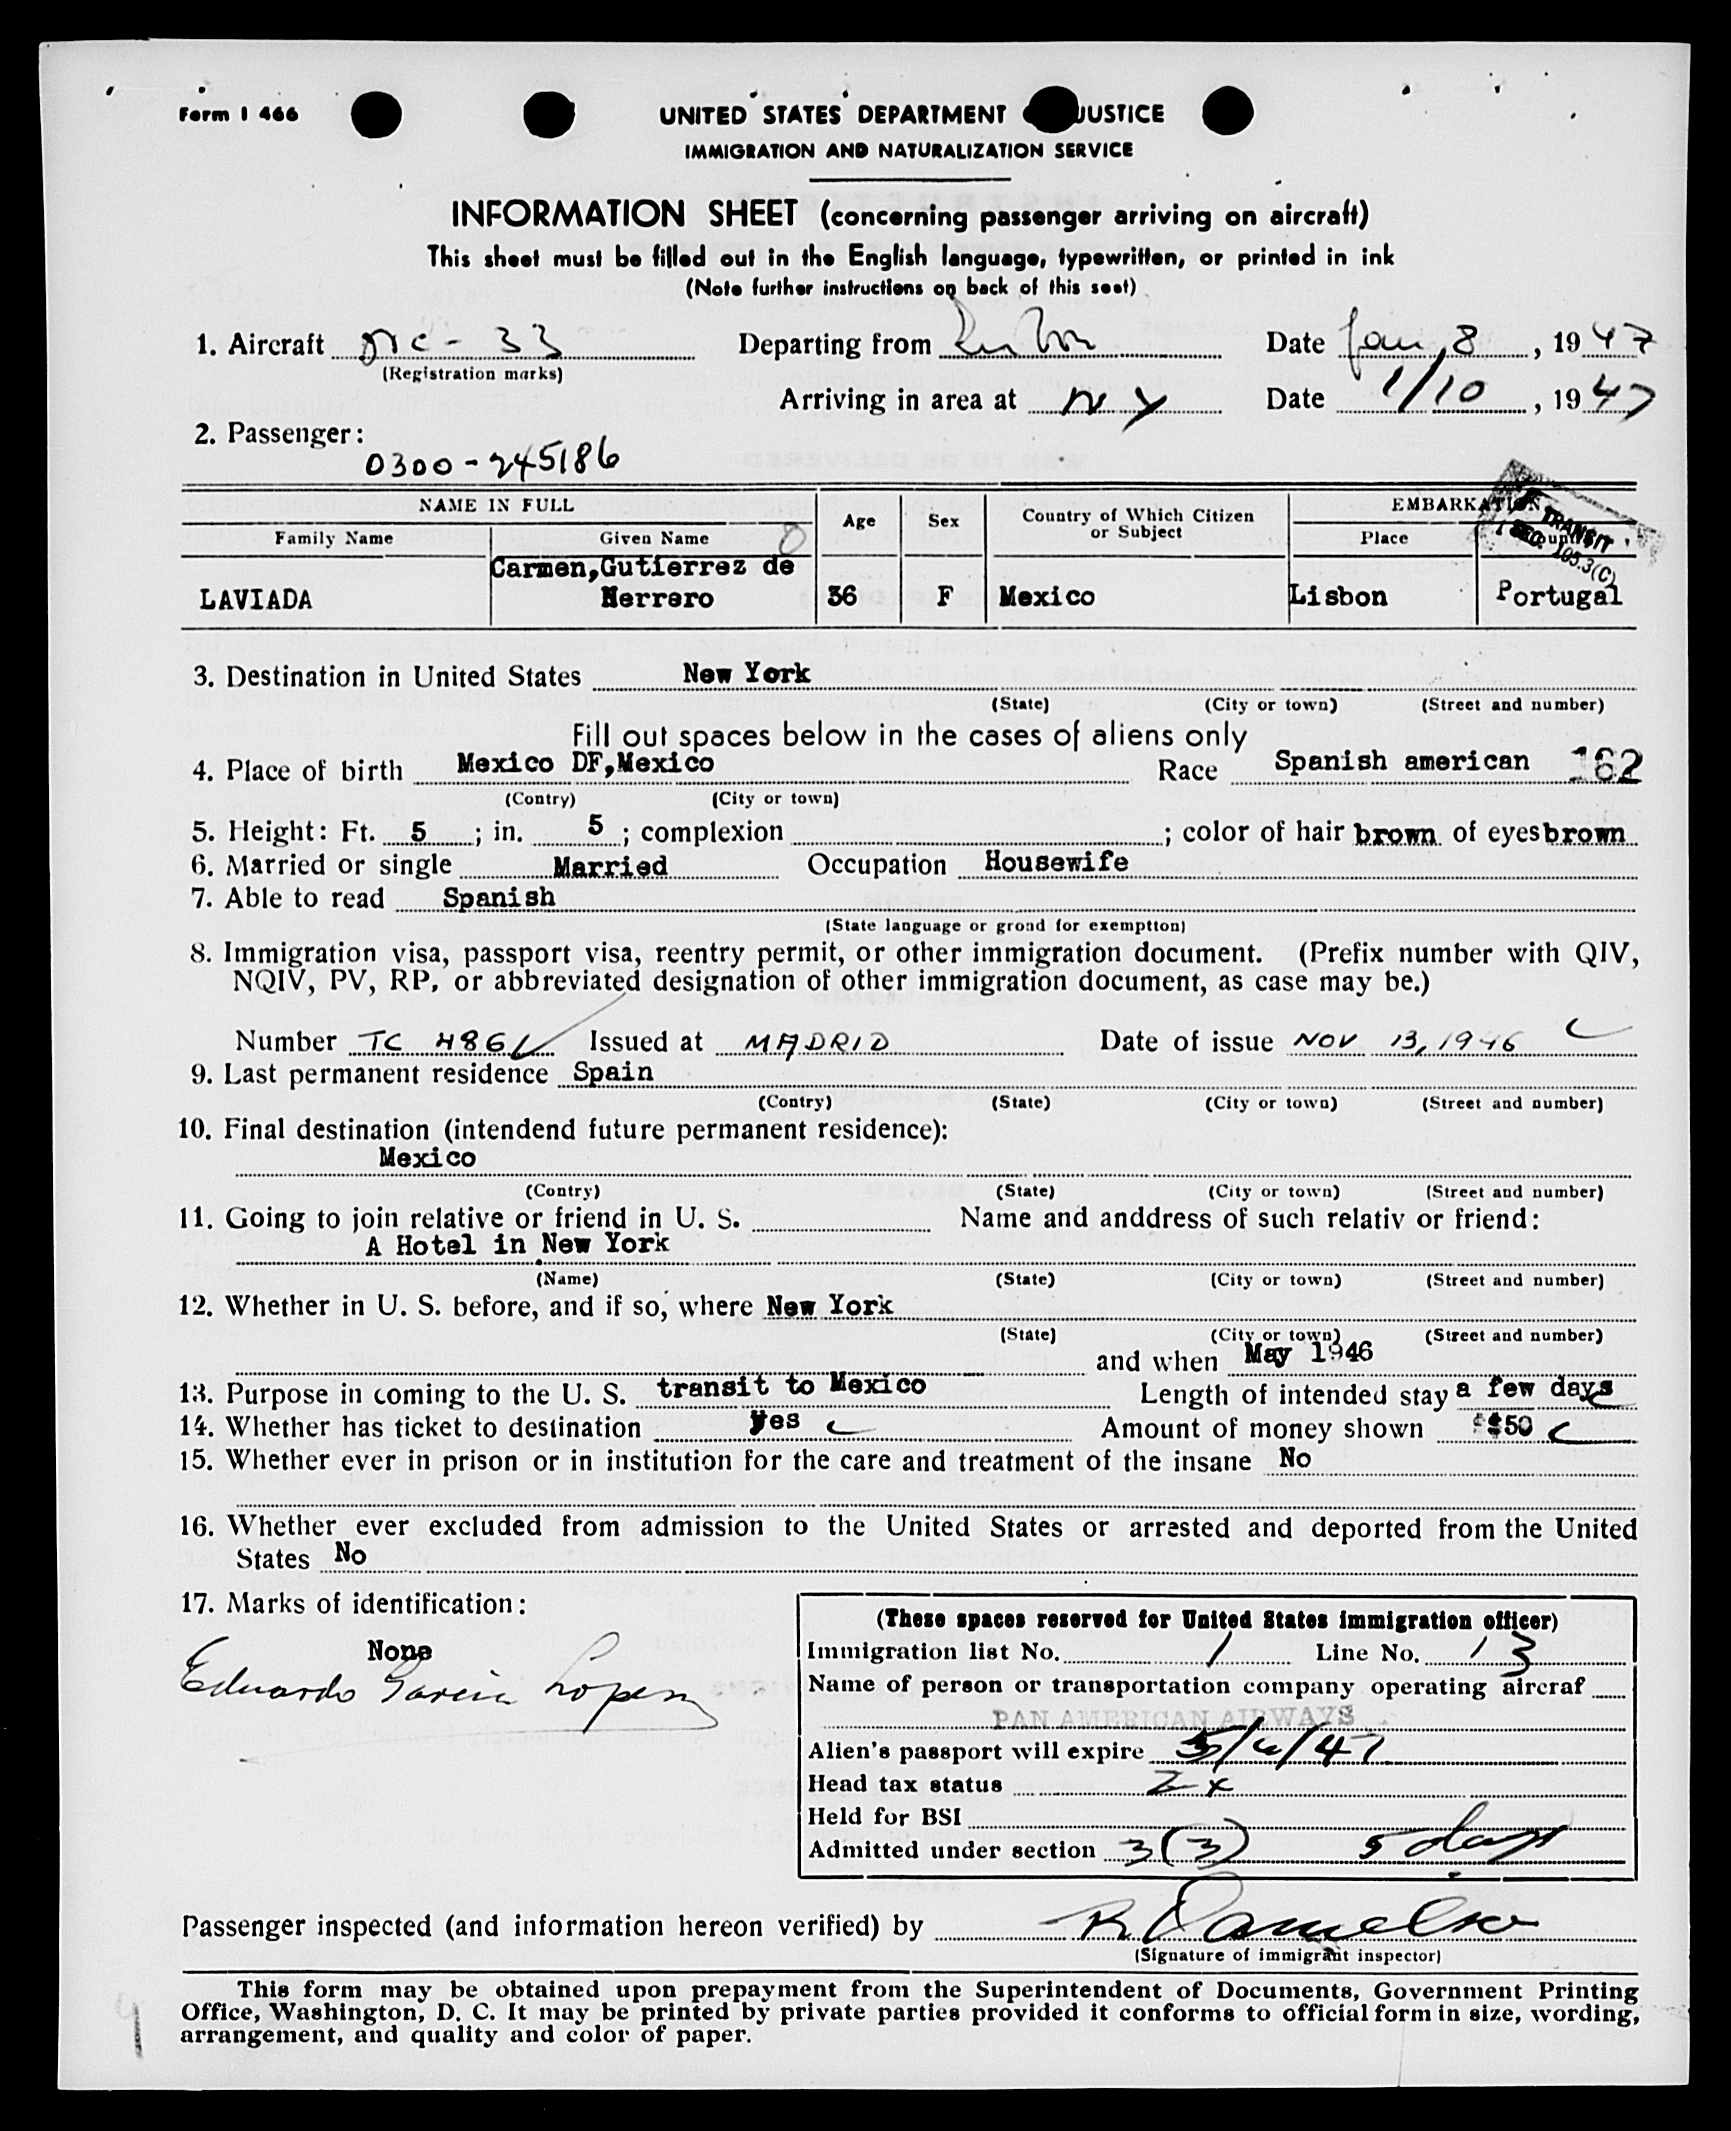 Form I 466
UNITED STATES DEPARTMENT JUSTICE
IMMIGRATION AND NATURALIZATION SERVICE
INFORMATION SHEET (concerning passenger arriving on aircraft)
This sheet must be filled out in the English language, typewritten, or printed in ink
(Note further instructions on back of this seet)
1. Aircraft NC - 33 Departing from Date Jan 8, 1947
(Registration marks)
Arriving in area at NY Date 1/10, 1947
2. Passenger:
0300-245186
NAME IN FULL Age Sex Country of Which Citizen or Subject EMBARKATION
Family Name Given Name Place
TRANSIT
SEC. 105.3(C)
LAVIADA Carmen,Gutierrez de Herrero 36 F Mexico Lisbon Portugal
3. Destination in United States New York
(State) (City or town) (Street and number)
Fill out spaces below in the cases of aliens only
4. Place of birth Mexico DF,Mexico Race Spanish american 162
(Contry) (City or town)
5. Height: Ft. 5 ; in. 5 ; complexion ; color of hair brown of eyes brown
6. Married or single Married Occupation Housewife
7. Able to read Spanish
(State language or grond for exemptton)
8. Immigration visa, passport visa, reentry permit, or other immigration document. (Prefix number with QIV,
NQIV, PV, RP, or abbreviated designation of other immigration document, as case may be.)
Number TC 4861 Issued at MADRID Date of issue NOV 13, 1946
9. Last permanent residence Spain
(Contry) (State) (City or town) (Street and number)
10. Final destination (intendend future permanent residence):
Mexico
(Contry) (State) (City or town) (Street and number)
11. Going to join relative or friend in U. S. Name and anddress of such relativ or friend:
A Hotel in New York
(Name) (State) (City or town) (Street and number)
12. Whether in U. S. before, and if so, where New York
(State) (City or town) (Street and number)
and when May 1946
13. Purpose in coming to the U. S. transit to Mexico Length of intended stay a few days
14. Whether has ticket to destination Yes Amount of money shown $50
15. Whether ever in prison or in institution for the care and treatment of the insane No
16. Whether ever excluded from admission to the United States or arrested and deported from the United
States No
17. Marks of identification:
None
Eduardo Garcia Lopez
(These spaces reserved for United States immigration officer)
Immigration list No. 1 Line No. 13
Name of person or transportation company operating aircraf
PAN AMERICAN AIRWAYS
Alien's passport will expire 5/6/47
Head tax status
Held for BSI
Admitted under section 3(3) 5 days
Passenger inspected (and information hereon verified) by
(Signature of immigrant inspector)
This form may be obtained upon prepayment from the Superintendent of Documents, Government Printing
Office, Washington, D. C. It may be printed by private parties provided it conforms to official form in size, wording,
arrangement, and quality and color of paper.